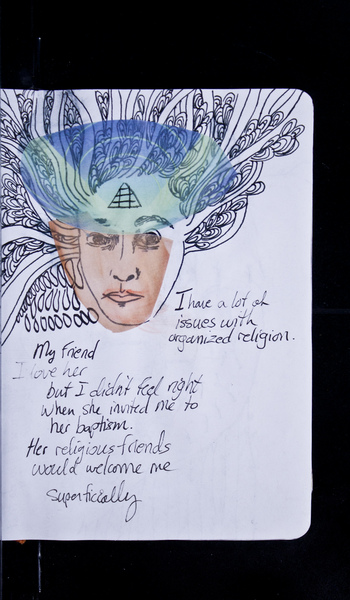 I have a lot of
issues with
organized religion.
My friend
I love her
but I didn't feel right
when she invited me to
her baptism.
Her religious friends
would welcome me
superficially